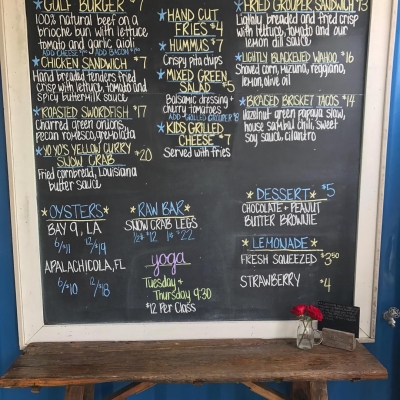 GULF BURGER $7
100% natural beef on a
brioche bun with lettuce
tomato and garlic aioli
ADD CHEESE ADD BACON
CHICKEN SANDWICH $7
Hand breaded tenders fried
crisp with lettuce, tomato and
spicy buttermilk sauce
ROASTED SWORDFISH $17
Charred green onions,
pecan romesco,
YO YO'S YELLOW CURRY
SNOW CRAB $20
Fried cornbread, Louisiana
butter sauce
HAND CUT
FRIES $4
HUMMUS $7
Crispy pita chips
MIXED GREEN
SALAD $5
Balsamic dressing +
cherry tomatoes
ADD GRILLED GROUPER $8
KIDS GRILLED
CHEESE $7
Served with fries
FRIED GROUPER SANDWICH $13
Lightly breaded and fried crisp
with lettuce, tomato and our
lemon dill sauce
LIGHTLY BLACKENED WAHOO $16
Shaved corn, mizuna, reggiano,
lemon, olive oil
BRAISED BRISKET TACOS $14
Hazelnut-green papaya slaw,
house sambal chili, sweet
soy sauce cilantro
OYSTERS
BAY 9, LA
6/$11 12/$19
APALACHICOLA, FL
6/$10 12/$18
RAW BAR
SNOW CRAB LEGS
1/2# $12 1# $22
yoga
Tuesday +
Thursday 9:30
$12 Per Class
DESSERT $5
CHOCOLATE + PEANUT
BUTTER BROWNIE
LEMONADE
FRESH SQUEEZED $3.50
STRAWBERRY $4